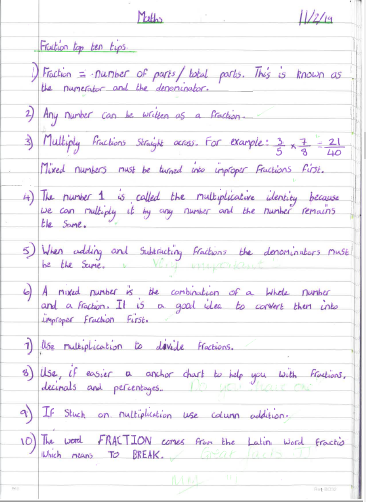 Maths 11/2/19
Fraction top ten tips
1) Fraction = number of parts/ total parts. This is known as
the numerator and the denominator.
2) Any number can be written as a fraction.
3) Multiply fractions straight across. For example: 3/5 x 7/8 = 21/40
Mixed numbers must be turned into improper fractions first.
4) The number 1 is called the multiplicative identity because
we can multiply it by any number and the number remains
the same.
5) When adding and subtracting fractions the denominators must
be the same. Very important
6) A mixed number is the combination of a whole number
and a fraction. It is a good idea to convert them into
improper fraction first.
7) Use multiplication to divide fractions.
8) Use, if easier a anchor chart to help you with fractions,
decimals and percentages. Do you
9) If stuck on multiplication use column addition.
10) The word FRACTION comes from the Latin word fractio
which means TO BREAK.